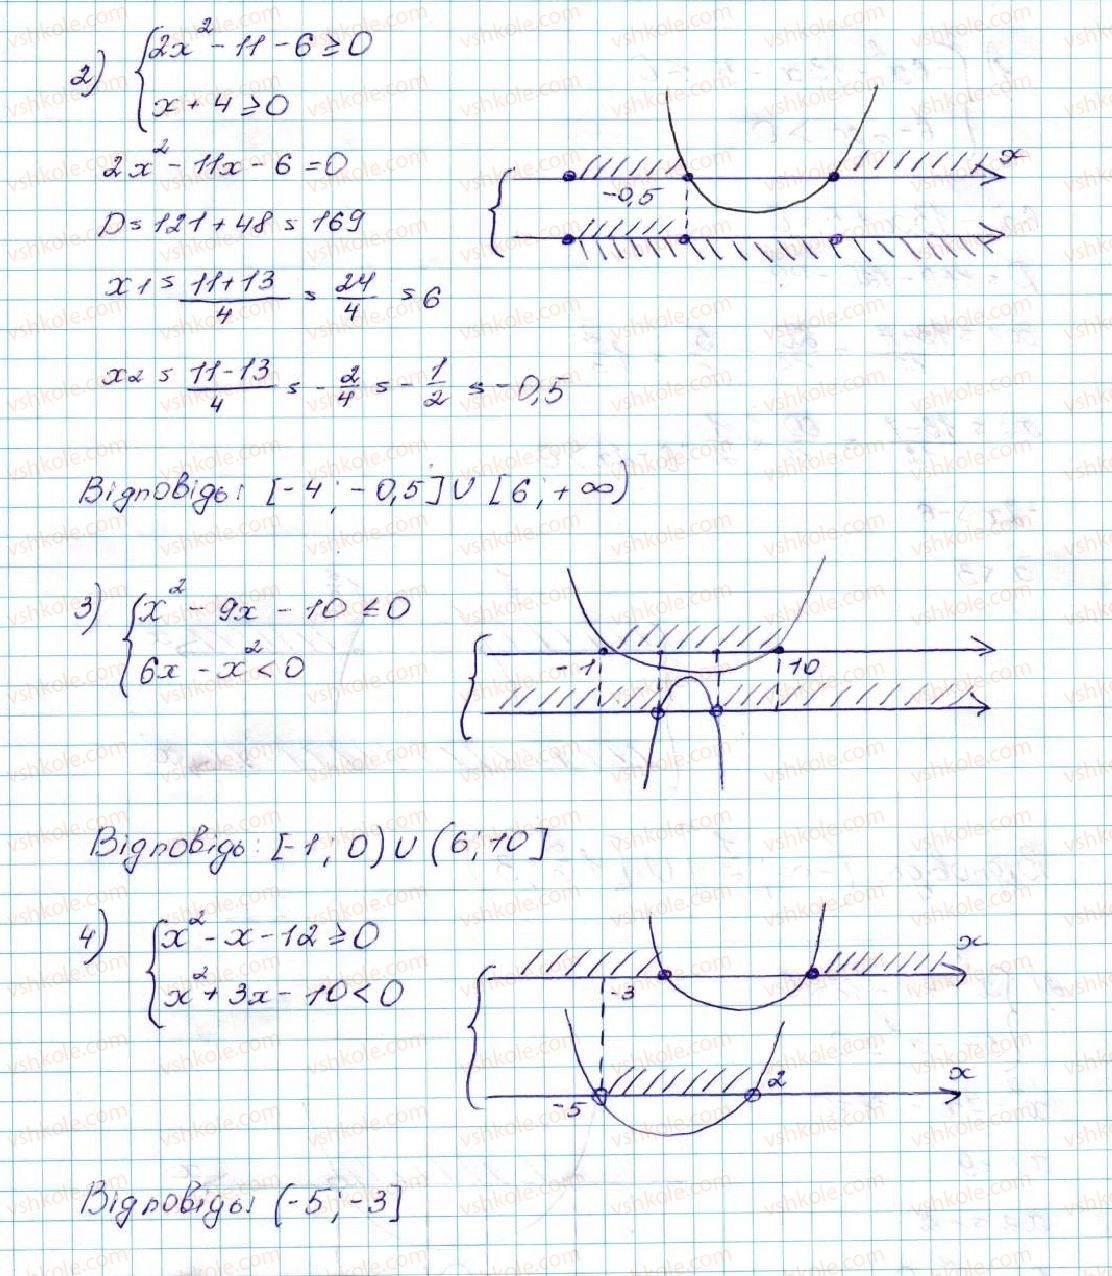 2) { 2x² - 11 - 6 ≥ 0
x + 4 ≥ 0
2x² - 11x - 6 = 0
D = 121 + 48 = 169
x1 = (11+13)/4 = 24/4 = 6
x2 = (11-13)/4 = -2/4 = -1/2 = -0,5
x
-0,5
Відповідь: [-4; -0,5] ∪ [6; +∞)
3) { x² - 9x - 10 ≤ 0
6x - x² < 0
-1 10
Відповідь: [-1; 0) ∪ (6; 10]
4) { x² - x - 12 ≥ 0
x² + 3x - 10 < 0
x
-3
x
-5 2
Відповідь (-5; -3]
vshkole.com